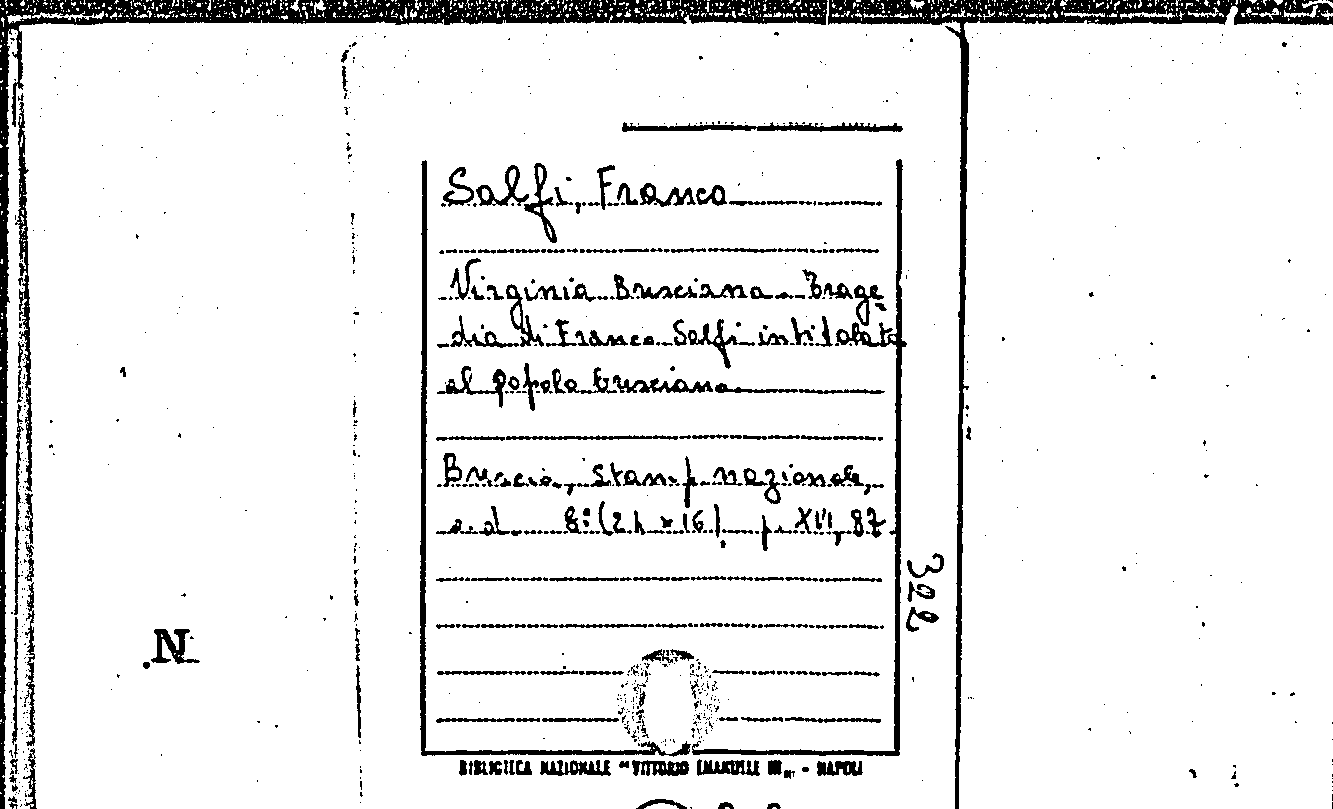 Salfi, Franco
Virginia Bresciana. Trage
dia di Franco Salfi intitolata
al popolo bresciano.
Brescia, Stamp. nazionale,
s. d. 8° (24 × 16). p. XVI, 87.
322
N
BIBLIOTECA NAZIONALE "VITTORIO EMANUELE III" - NAPOLI